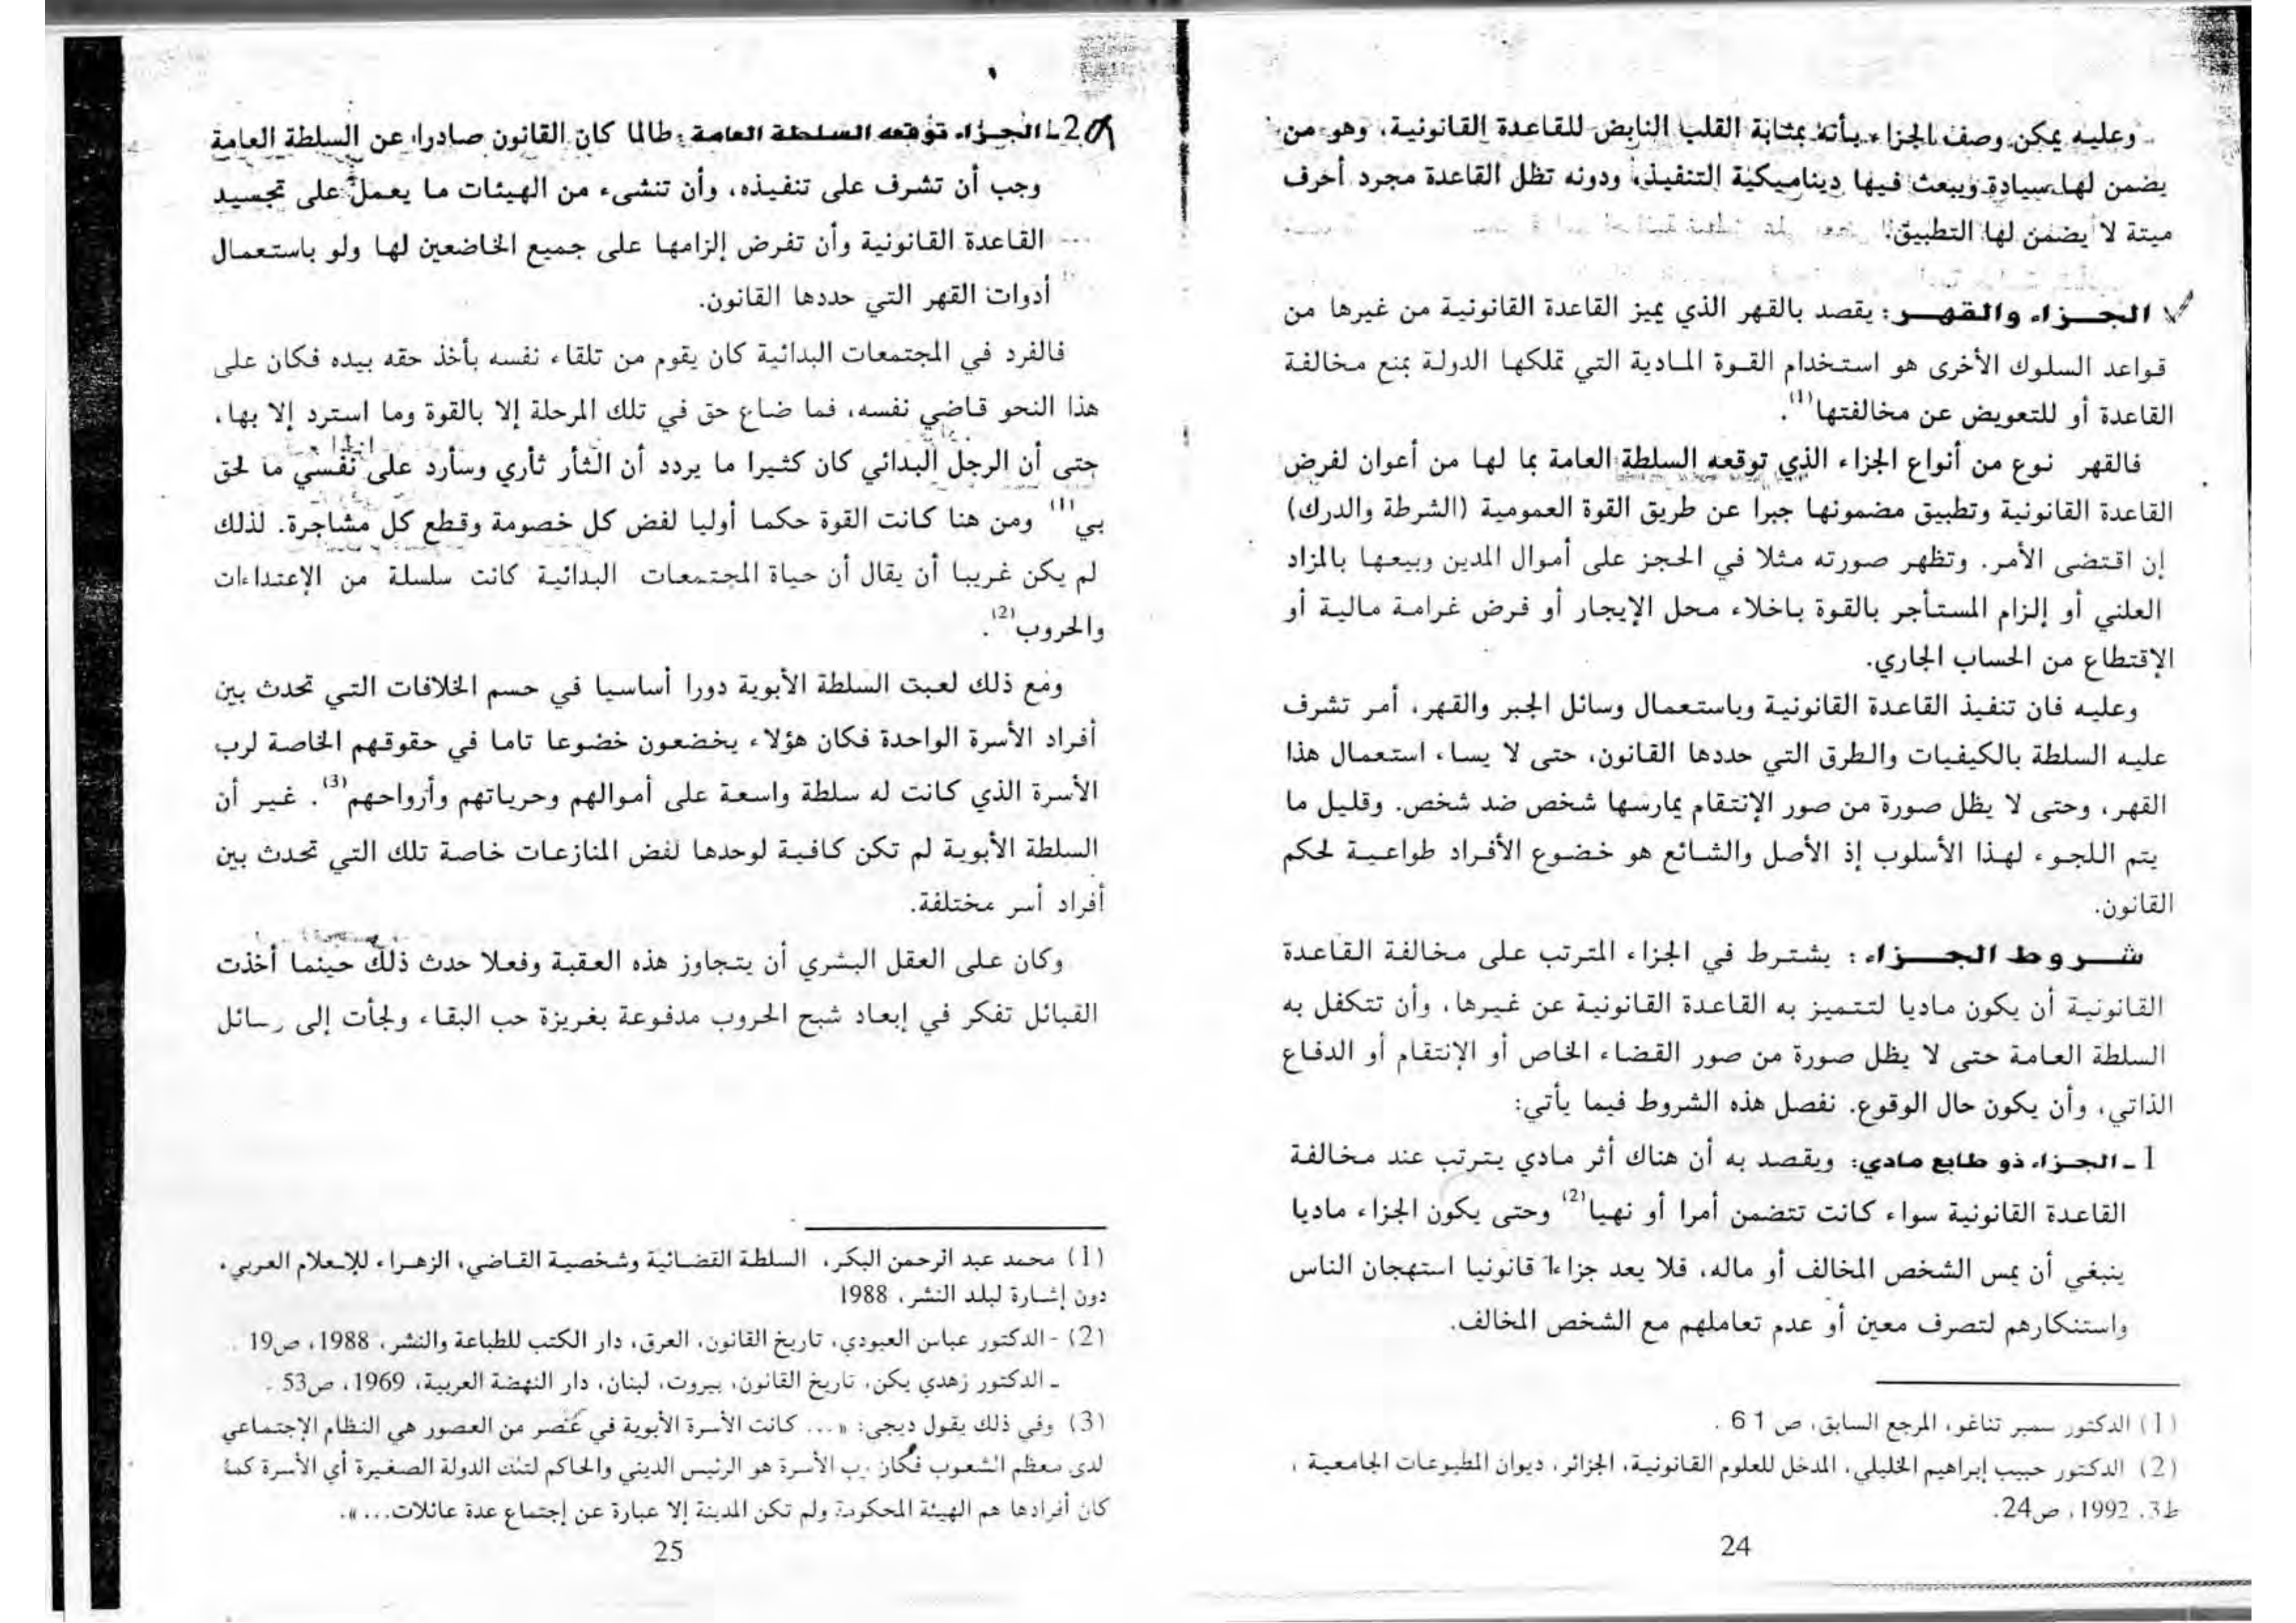 وعليه يمكن وصف الجزاء بأنه بمثابة القلب النابض للقاعدة القانونية، وهو من
يضمن لها سيادة ويبعث فيها ديناميكية التنفيذ، ودونه تظل القاعدة مجرد أحرف
ميتة لا يضمن لها التطبيق.
الجزاء والقهر: يقصد بالقهر الذي يميز القاعدة القانونية من غيرها من
قواعد السلوك الأخرى هو استخدام القوة المادية التي تملكها الدولة بمنع مخالفة
القاعدة أو للتعويض عن مخالفتها(1).
فالقهر نوع من أنواع الجزاء الذي توقعه السلطة العامة بما لها من أعوان لفرض
القاعدة القانونية وتطبيق مضمونها جبرا عن طريق القوة العمومية (الشرطة والدرك)
إن اقتضى الأمر. وتظهر صورته مثلا في الحجز على أموال المدين وبيعها بالمزاد
العلني أو إلزام المستأجر بالقوة باخلاء محل الإيجار أو فرض غرامة مالية أو
الإقتطاع من الحساب الجاري.
وعليه فان تنفيذ القاعدة القانونية وباستعمال وسائل الجبر والقهر، أمر تشرف
عليه السلطة بالكيفيات والطرق التي حددها القانون، حتى لا يساء استعمال هذا
القهر، وحتى لا يظل صورة من صور الإنتقام يمارسها شخص ضد شخص. وقليل ما
يتم اللجوء لهذا الأسلوب إذ الأصل والشائع هو خضوع الأفراد طواعية لحكم
القانون.
شروط الجزاء: يشترط في الجزاء المترتب على مخالفة القاعدة
القانونية أن يكون ماديا لتتميز به القاعدة القانونية عن غيرها، وأن تتكفل به
السلطة العامة حتى لا يظل صورة من صور القضاء الخاص أو الإنتقام أو الدفاع
الذاتي، وأن يكون حال الوقوع. نفصل هذه الشروط فيما يأتي:
1 ـ الجزاء ذو طابع مادي: ويقصد به أن هناك أثر مادي يترتب عند مخالفة
القاعدة القانونية سواء كانت تتضمن أمرا أو نهيا(2) وحتى يكون الجزاء ماديا
ينبغي أن يمس الشخص المخالف أو ماله، فلا يعد جزاءا قانونيا استهجان الناس
واستنكارهم لتصرف معين أو عدم تعاملهم مع الشخص المخالف.
(1) الدكتور سمير تناغو، المرجع السابق، ص 61 .
(2) الدكتور حبيب إبراهيم الخليلي، المدخل للعلوم القانونية، الجزائر، ديوان المطبوعات الجامعية ،
ط3، 1992 ، ص24.
24
2 ـ الجزاء توقعه السلطة العامة: طالما كان القانون صادرا عن السلطة العامة
وجب أن تشرف على تنفيذه، وأن تنشىء من الهيئات ما يعمل على تجسيد
القاعدة القانونية وأن تفرض إلزامها على جميع الخاضعين لها ولو باستعمال
أدوات القهر التي حددها القانون.
فالفرد في المجتمعات البدائية كان يقوم من تلقاء نفسه بأخذ حقه بيده فكان على
هذا النحو قاضي نفسه، فما ضاع حق في تلك المرحلة إلا بالقوة وما استرد إلا بها،
حتى أن الرجل البدائي كان كثيرا ما يردد أن الثأر ثأري وسأرد على نفسي ما لحق
بي(1) ومن هنا كانت القوة حكما أوليا لفض كل خصومة وقطع كل مشاجرة. لذلك
لم يكن غريبا أن يقال أن حياة المجتمعات البدائية كانت سلسلة من الإعتداءات
والحروب(2).
ومع ذلك لعبت السلطة الأبوية دورا أساسيا في حسم الخلافات التي تحدث بين
أفراد الأسرة الواحدة فكان هؤلاء يخضعون خضوعا تاما في حقوقهم الخاصة لرب
الأسرة الذي كانت له سلطة واسعة على أموالهم وحرياتهم وأرواحهم(3). غير أن
السلطة الأبوية لم تكن كافية لوحدها لفض المنازعات خاصة تلك التي تحدث بين
أفراد أسر مختلفة.
وكان على العقل البشري أن يتجاوز هذه العقبة وفعلا حدث ذلك حينما أخذت
القبائل تفكر في إبعاد شبح الحروب مدفوعة بغريزة حب البقاء ولجأت إلى
(1) محمد عبد الرحمن البكر، السلطة القضائية وشخصية القاضي، الزهراء للإعلام العربي،
دون إشارة لبلد النشر، 1988
(2) - الدكتور عباس العبودي، تاريخ القانون، العرق، دار الكتب للطباعة والنشر، 1988، ص19 .
ـ الدكتور زهدي يكن، تاريخ القانون، بيروت، لبنان، دار النهضة العربية، 1969، ص53 .
(3) وفي ذلك يقول ديجي: «... كانت الأسرة الأبوية في عصر من العصور هي النظام الإجتماعي
لدى معظم الشعوب فكان رب الأسرة هو الرئيس الديني والحاكم لتلك الدولة الصغيرة أي الأسرة كما
كان أفرادها هم الهيئة المحكومة ولم تكن المدينة إلا عبارة عن إجتماع عدة عائلات...».
25